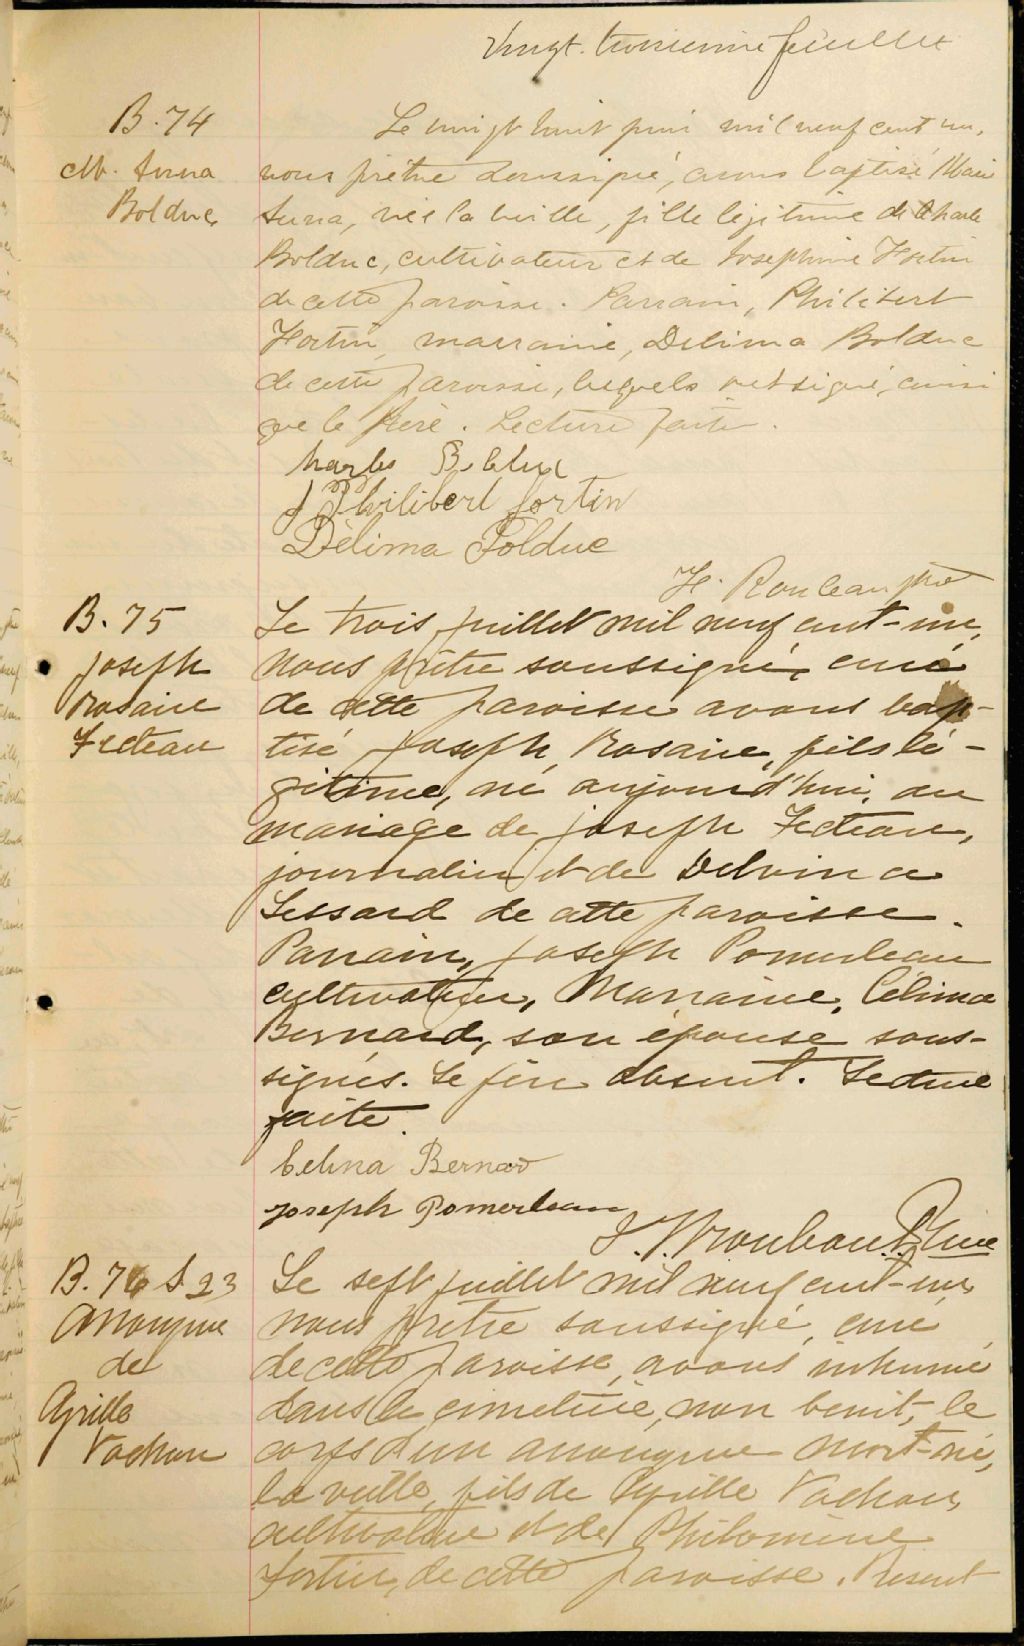 Vingt-troisième feuillet
B. 74
M. Anna
Bolduc
Le vingt huit juin mil neuf cent un,
nous prêtre soussigné, avons baptisé Marie
Anna, née la veille, fille légitime de Charles
Bolduc, cultivateur et de Joséphine Fortin
de cette paroisse. Parrain, Philibert
Fortin, marraine, Delima Bolduc
de cette paroisse, lesquels ont signé, ainsi
que le père. Lecture faite.
Charles Bolduc
J Philibert fortin
Délima Bolduc
H. Rouleau ptre
B. 75
Joseph
Rosaire
Fecteau
Le trois juillet mil neuf cent-un,
nous prêtre soussigné, curé
de cette paroisse avons bap-
tisé Joseph Rosaire, fils lé-
gitime, né aujourd'hui, du
mariage de Joseph Fecteau,
journalier et de Delvina
Lessard de cette paroisse.
Parrain, Joseph Pomerleau
cultivateur, Marraine, Célina
Bernard, son épouse sous-
signés. Le père absent. Lecture
faite.
Celina Bernard
Joseph Pomerleau
Ptre curé
B. 76 S 23
Anonyme
de
Cyrille
Vachon
Le sept juillet mil neuf cent-un,
nous prêtre soussigné, curé
de cette paroisse, avons inhumé
dans le cimetière, non benit, le
corps d'un anonyme mort-né,
la veille, fils de Cyrille Vachon,
cultivateur et de Philomène
Fortier, de cette paroisse. Présent